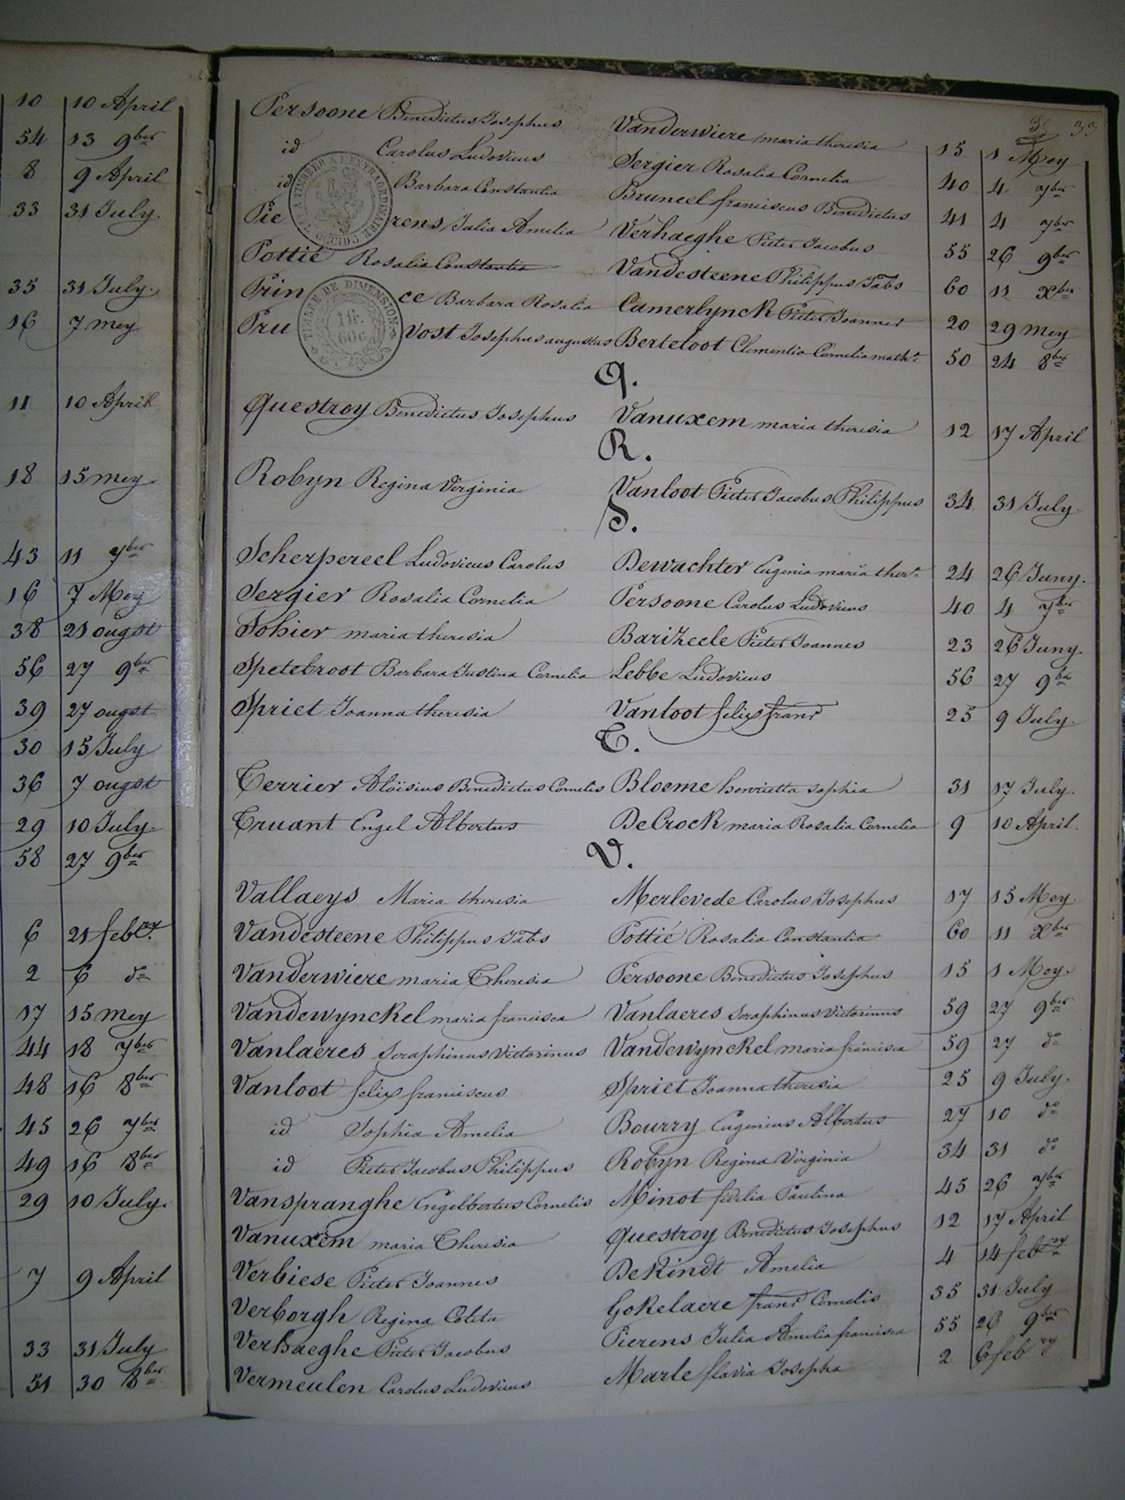 10 10 April
54 13 9ber
8 9 April
33 31 July.
35 31 July.
16 7 mey
11 10 April
18 15 mey.
43 11 7ber
16 7 Mey
38 21 ougst
56 27 9ber
39 27 ougst
30 15 July
36 7 ougst
29 10 July
58 27 9ber
6 21 febry.
2 6 do
17 15 mey
44 18 7ber
48 16 8ber
45 26 7ber
49 16 8ber
29 10 July.
7 9 April
33 31 July
51 30 8ber
33
Persoone Benedictus Josephus Vanderwiere maria theresia 15 1 Mey
id Carolus Ludovicus Sergier Rosalia Cornelia 40 4 7ber
id Barbara Constantia Bruneel franciscus Benedictus 41 4 7ber
Pierens Julia Amelia Verhaeghe Pieter Jacobus 55 26 9ber
Pottié Rosalia Constantia Vandesteene Philippus Jabs 60 11 xber
Prince Barbara Rosalia Camerlynck Pieter Joannes 20 29 mey
Pruvost Josephus augustus Berteloot Clementia Cornelia math. 50 24 8ber
TIMBRE DE DIMENSION
1 fr. 60c
Q.
Questroy Benedictus Josephus Vanuxem maria theresia 12 17 April
R.
Robyn Regina Virginia Vanloot Pieter Jacobus Philippus 34 31 July
S.
Scherpereel Ludovicus Carolus Dewachter Eugenia maria ther. 24 26 Juny.
Sergier Rosalia Cornelia Persoone Carolus Ludovicus 40 4 7ber
Sohier maria theresia Barizeele Pieter Joannes 23 26 Juny.
Spetebroot Barbara Justina Cornelia Lebbe Ludovicus 56 27 9ber
Spriet Joanna theresia Vanloot felix frans 25 9 July
T.
Terrier Aloïsius Benedictus Cornelis Bloeme henrietta sophia 31 17 July.
Truant Engel Albertus DeCrock maria Rosalia Cornelia 9 10 April.
V.
Vallaeys Maria theresia Merlevede Carolus Josephus 17 15 Mey
Vandesteene Philippus Jabs Pottié Rosalia Constantia 60 11 Xber
Vanderwiere maria Theresia Persoone Benedictus Josephus 15 1 Mey.
Vandewynckel maria francisca Vanlaeres Seraphinus Victorinus 59 27 9ber
Vanlaeres Seraphinus Victorinus Vandewynckel maria francisca 59 27 do
Vanloot felix franciscus Spriet Joanna theresia 25 9 July.
id Sophia Amelia Bourry Eugenius Albertus 27 10 do
id Pieter Jacobus Philippus Robyn Regina Virginia 34 31 do
Vanspranghe Engelbertus Cornelis Minot fidelia Paulina 45 26 7ber
Vanuxem maria Theresia Questroy Benedictus Josephus 12 17 April
Verbiese Pieter Joannes DeKindt Amelia 4 14 febry
Verborgh Regina Coleta Gokelaere frans Cornelis 35 31 July
Verhaeghe Pieter Jacobus Pierens Julia Amelia francisca 55 26 9ber
Vermeulen Carolus Ludovicus Marle flavia Josepha 2 6 febry